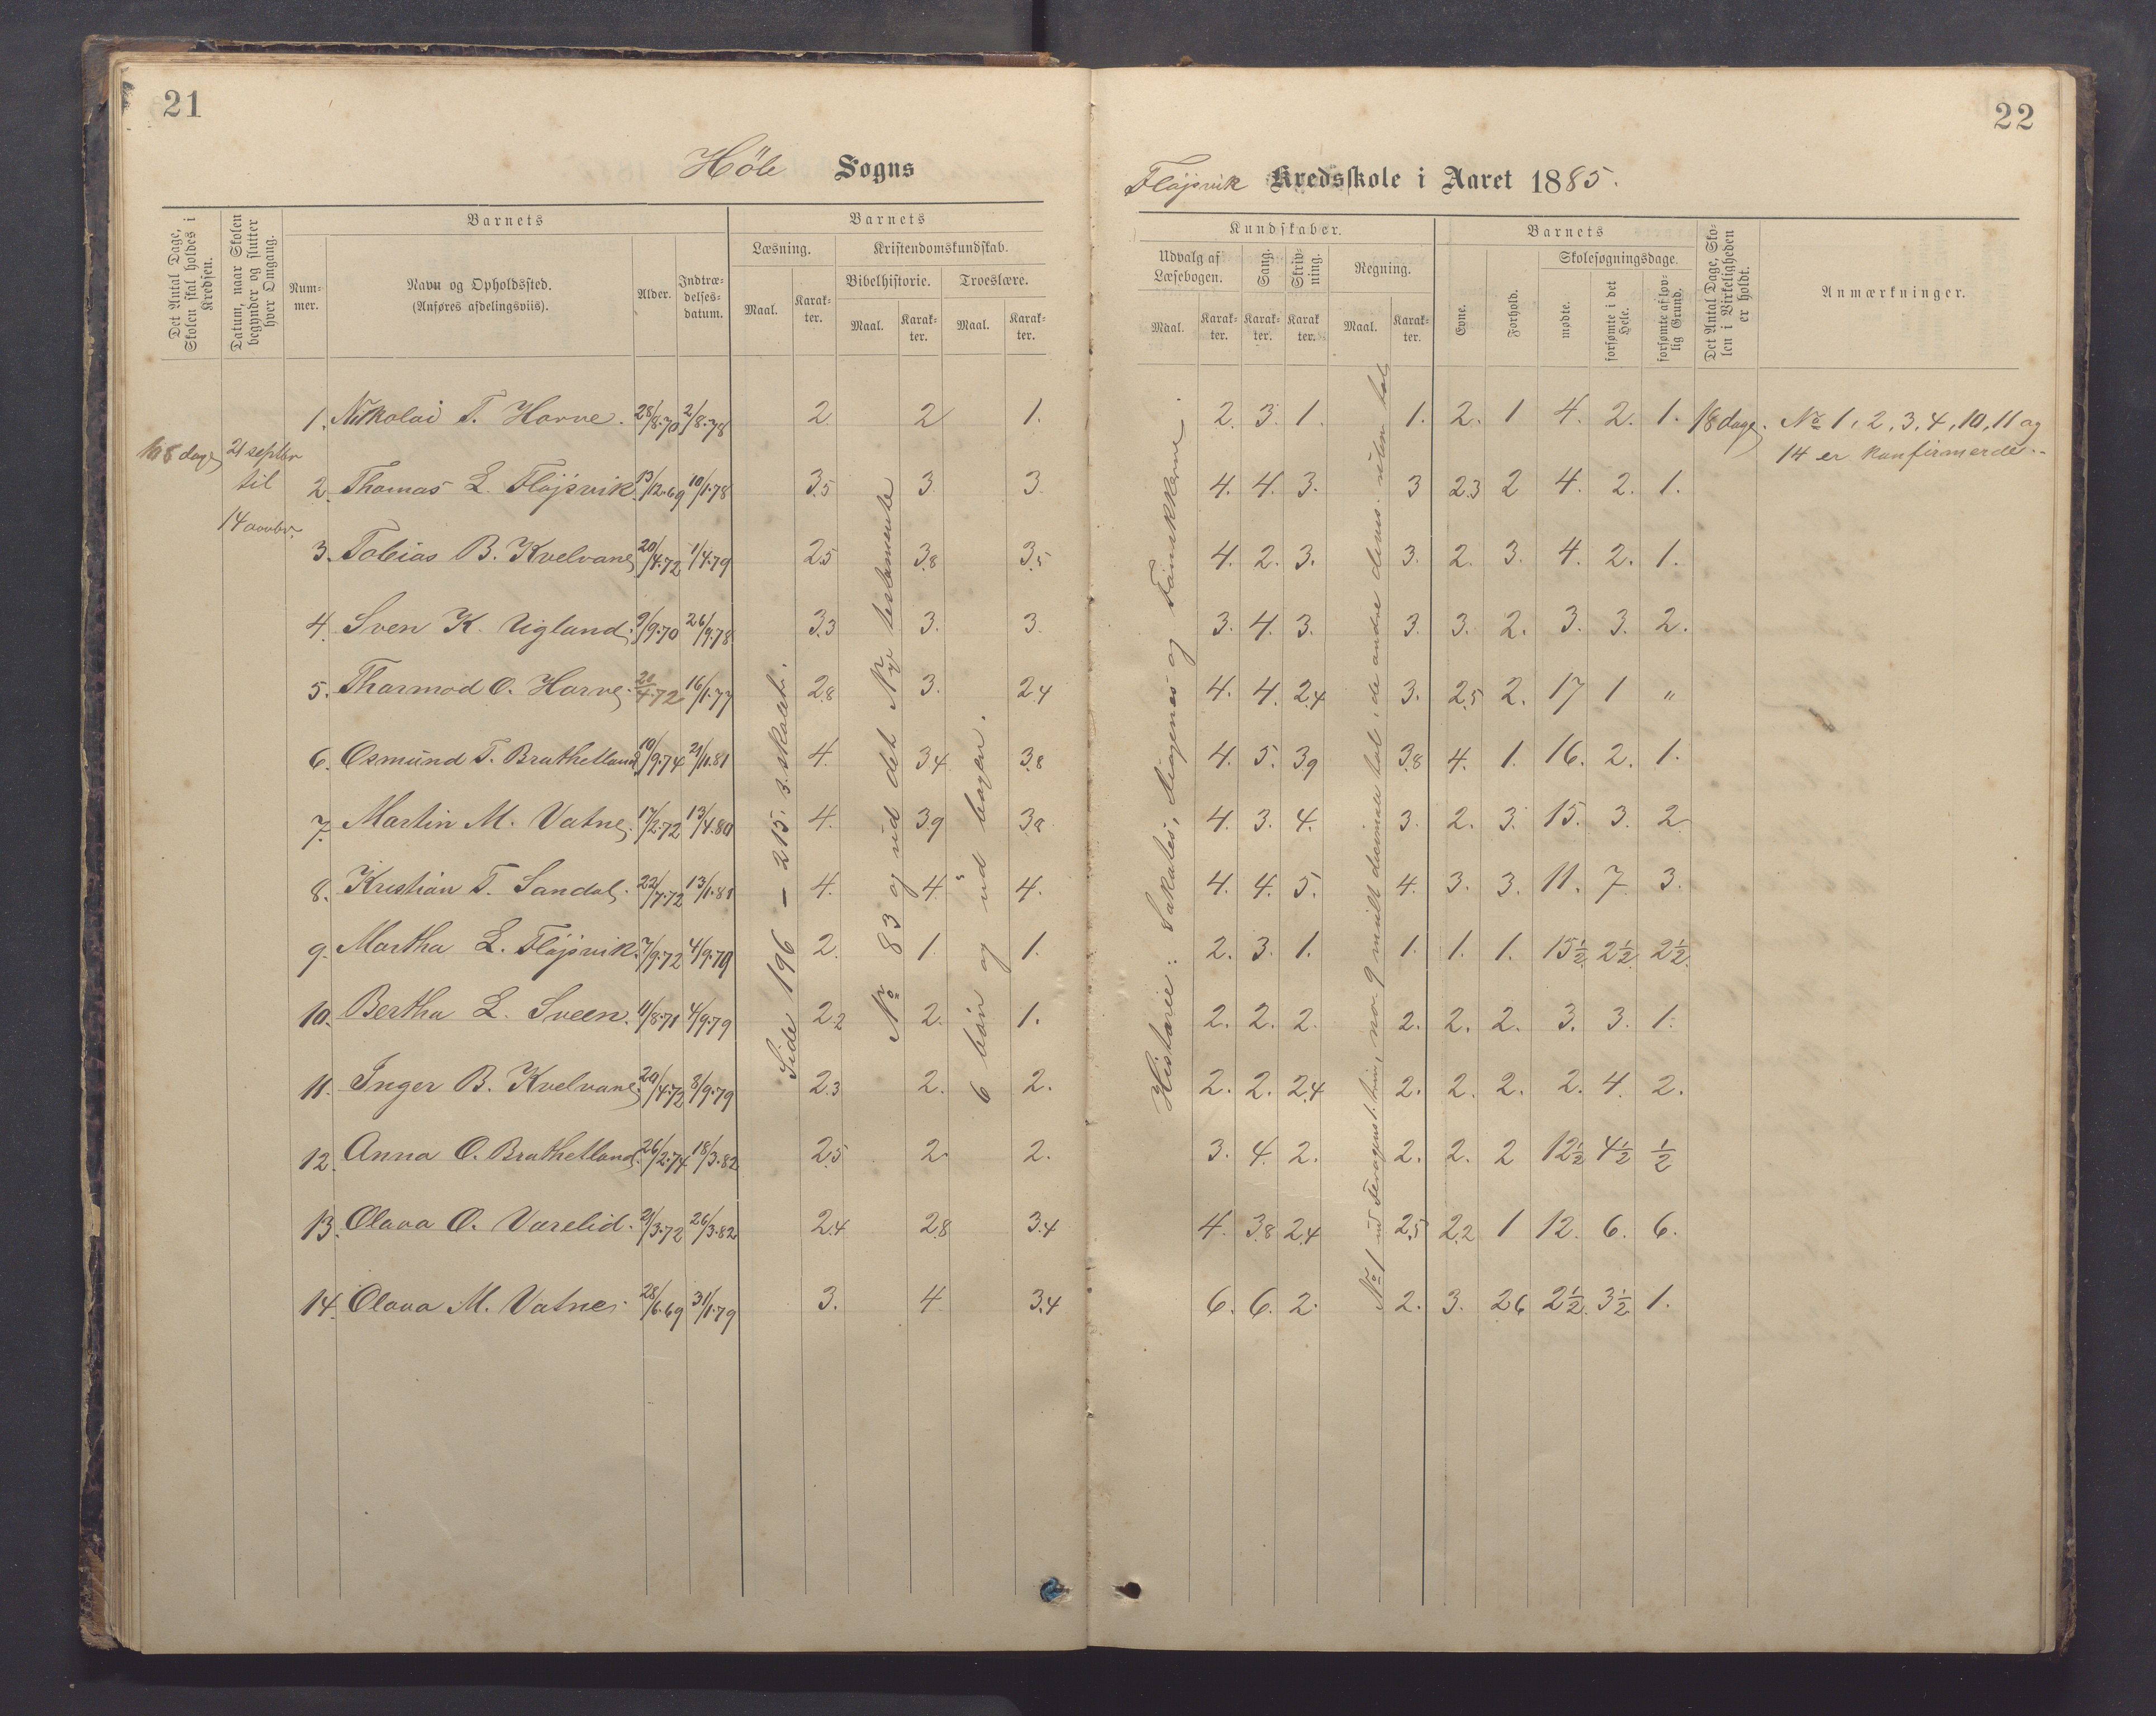 21
22
Höle Sogns
Fløjsvik Kredsskole i Aaret 1885.
Det Antal Dage, Skolen skal holdes i Kredsen.
Datum, naar Skolen begynder og slutter hver Omgang.
Barnets
Nummer.
Navn og Opholdssted.
(Anføres afdelingsviis).
Alder.
Indtrædelsesdatum.
Barnets
Læsning.
Maal.
Karakter.
Kristendomskundskab.
Bibelhistorie.
Maal.
Karakter.
Troeslære.
Maal.
Karakter.
Kundskaber.
Udvalg af Læsebogen.
Maal.
Karakter.
Sang.
Karakter.
Skrivning.
Karakter.
Regning.
Maal.
Karakter.
Barnets
Evne.
Forhold.
Skolesøgningsdage.
mødte.
forsømte i det Hele.
forsømte af lovlig Grund.
Det Antal Dage, Skolen i Virkeligheden er holdt.
Anmærkninger.
108 dage
21 septbr
til
14 novbr.
1. Nikolai T. Horve. 28/8.70 2/8.78 2 2 1. 2. 3. 1. 1. 2. 1 4. 2. 1. 18 dage. No 1, 2, 3, 4, 10, 11 og
14 er konfirmerde.
2. Thomas L. Fløjsvik. 13/12.69 10/1.78 3.5 3 3. 4. 4. 3. 3 2.3 2 4. 2. 1.
3. Tobias B. Kvelvane 20/4.72 1/4.79 2.5 3.8 3.5 4. 2. 3. 3. 2. 3. 4. 2. 1.
4. Sven K. Uigland. 9/9.70 26/9.78 3.3 3. 3. 3. 4. 3. 3. 3. 2. 3. 3. 2.
5. Thormod O. Horve. 20/4.72 16/1.77 2.8 3. 2.4 4. 4. 2.4 3. 2.5 2. 17 1 "
6. Osmund T. Brathetland 10/9.74 21/11.81 4. 3.4 3.8 4. 5. 3.9 3.8 4. 1. 16. 2. 1.
7. Martin M. Vatne. 17/2.72 13/4.80 4. 3.9 3.8 4. 3. 4. 3. 2. 3. 15. 3. 2
8. Kristian T. Sandal. 22/7.72 13/1.81 4. 4. 4. 4. 4. 5. 4. 3. 3. 11. 7. 3.
9. Martha L. Fløjsvik. 7/9.72 4/9.79 2. 1. 1. 2. 3. 1. 1. 1. 1. 15½ 2½ 2½
10. Bertha L. Sveen. 11/8.71 4/9.79 2.2 2. 1. 2. 2. 2. 2. 2. 2. 3. 3. 1.
11. Inger B. Kvelvane. 20/4.72 8/9.79 2.3 2. 2. 2. 2. 2.4 2. 2. 2. 2. 4. 2.
12. Anna O. Brathetland. 26/2.74 18/3.82 2.5 2. 2. 3. 4. 2. 2. 2. 2 12½ 4½ ½
13. Olava O. Varelid. 21/3.72 26/3.82 2.4 2.8 3.4 4. 3.8 2.4 2.5 2.2 1 12. 6. 6.
14. Olava M. Vatne. 28/6.69 31/1.79 3. 4 3.4 6. 6. 2. 2. 3. 2.6 2½ 3½ 1.
Side 196 — 215. 3. skolet.
No 83 og ud det Nye testamente
6 bön og ud bogen.
Historie: Sokrates, Diogenes og
No 1 ud no. 9 decimal de andre uden